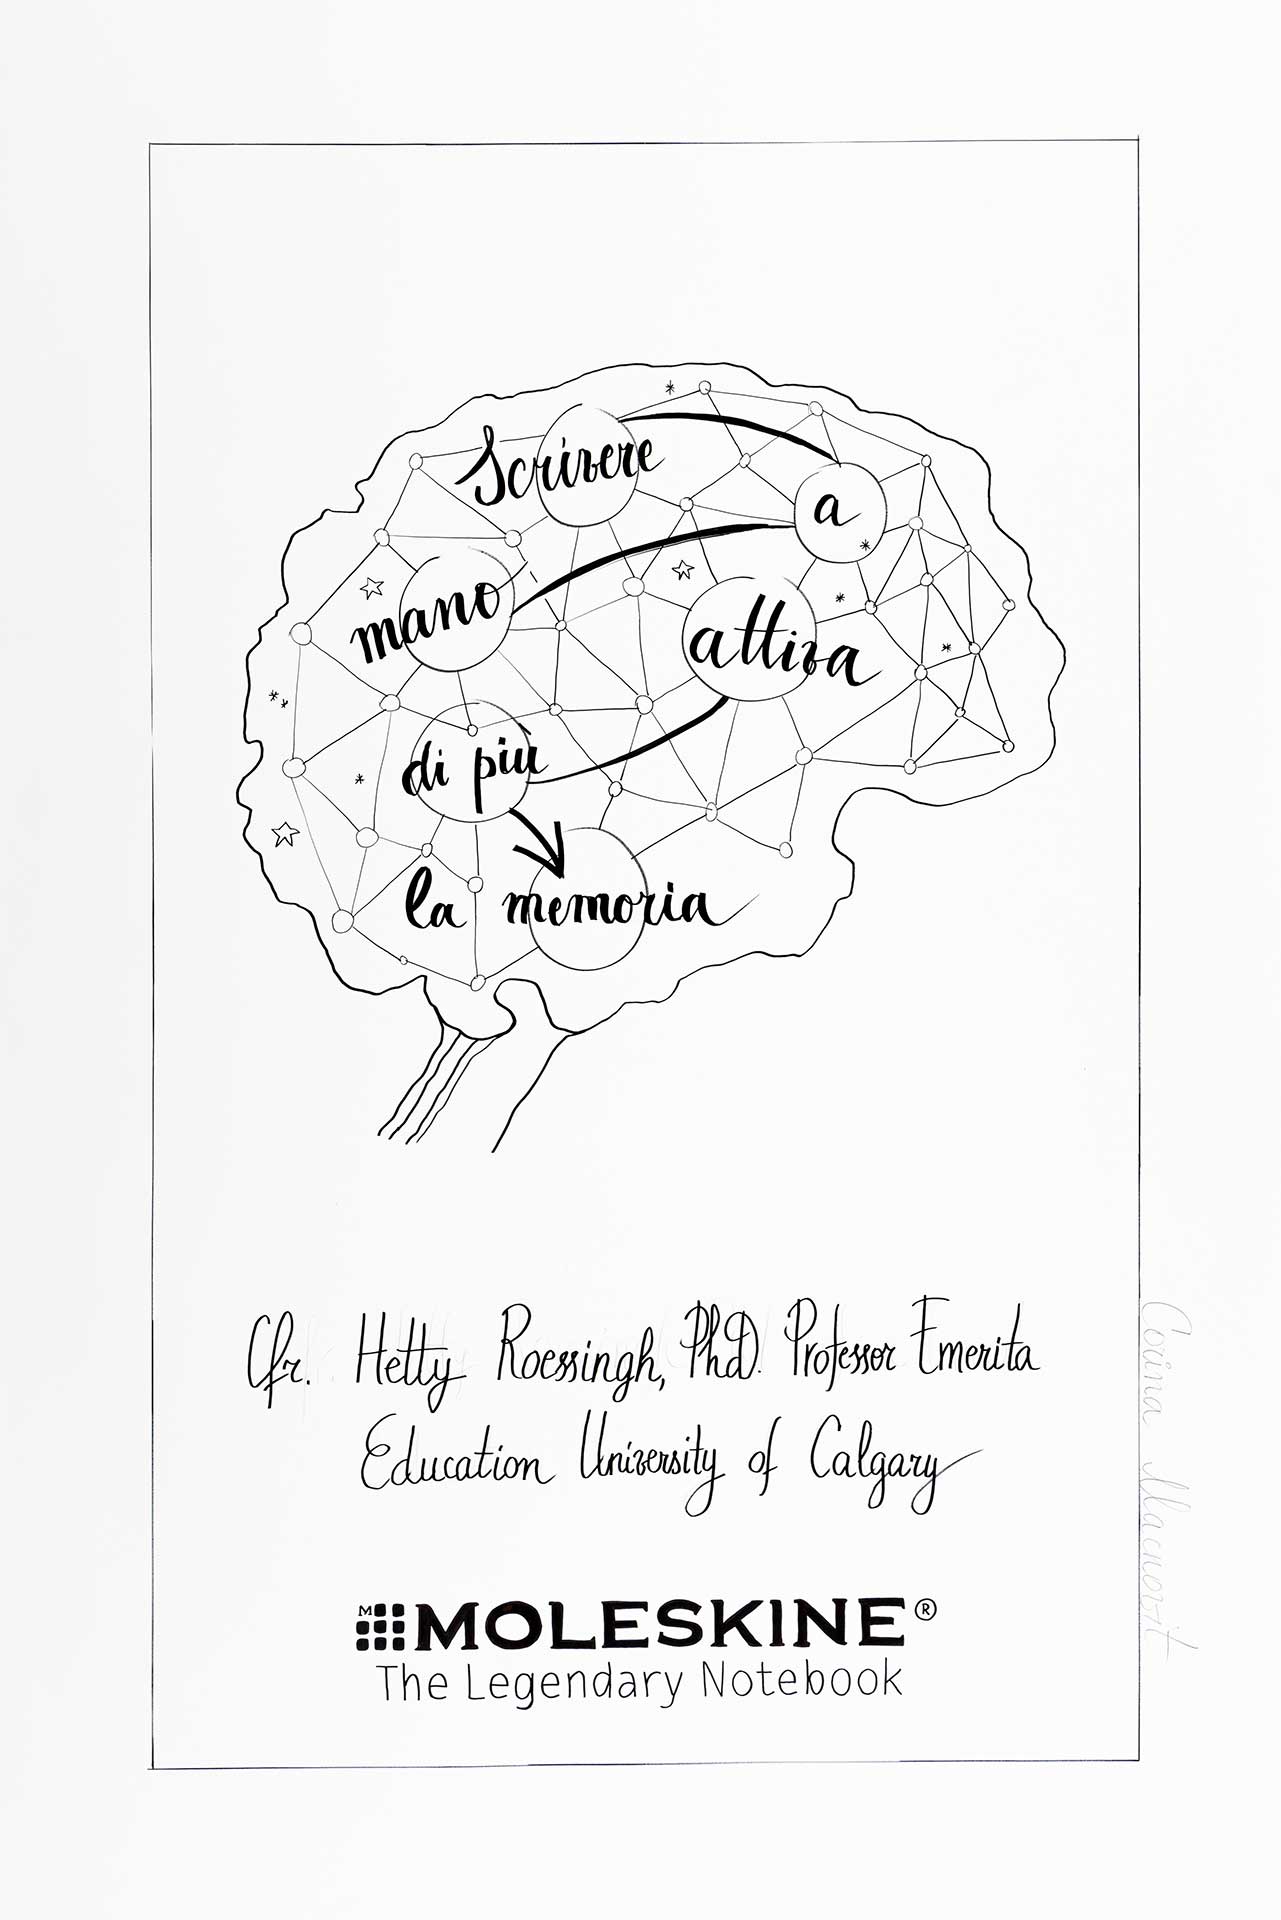 Scrivere
a
mano
attiva
di più
la memoria
Cfr. Hetty Roessingh, PhD. Professor Emerita
Education University of Calgary
M MOLESKINE®
The Legendary Notebook